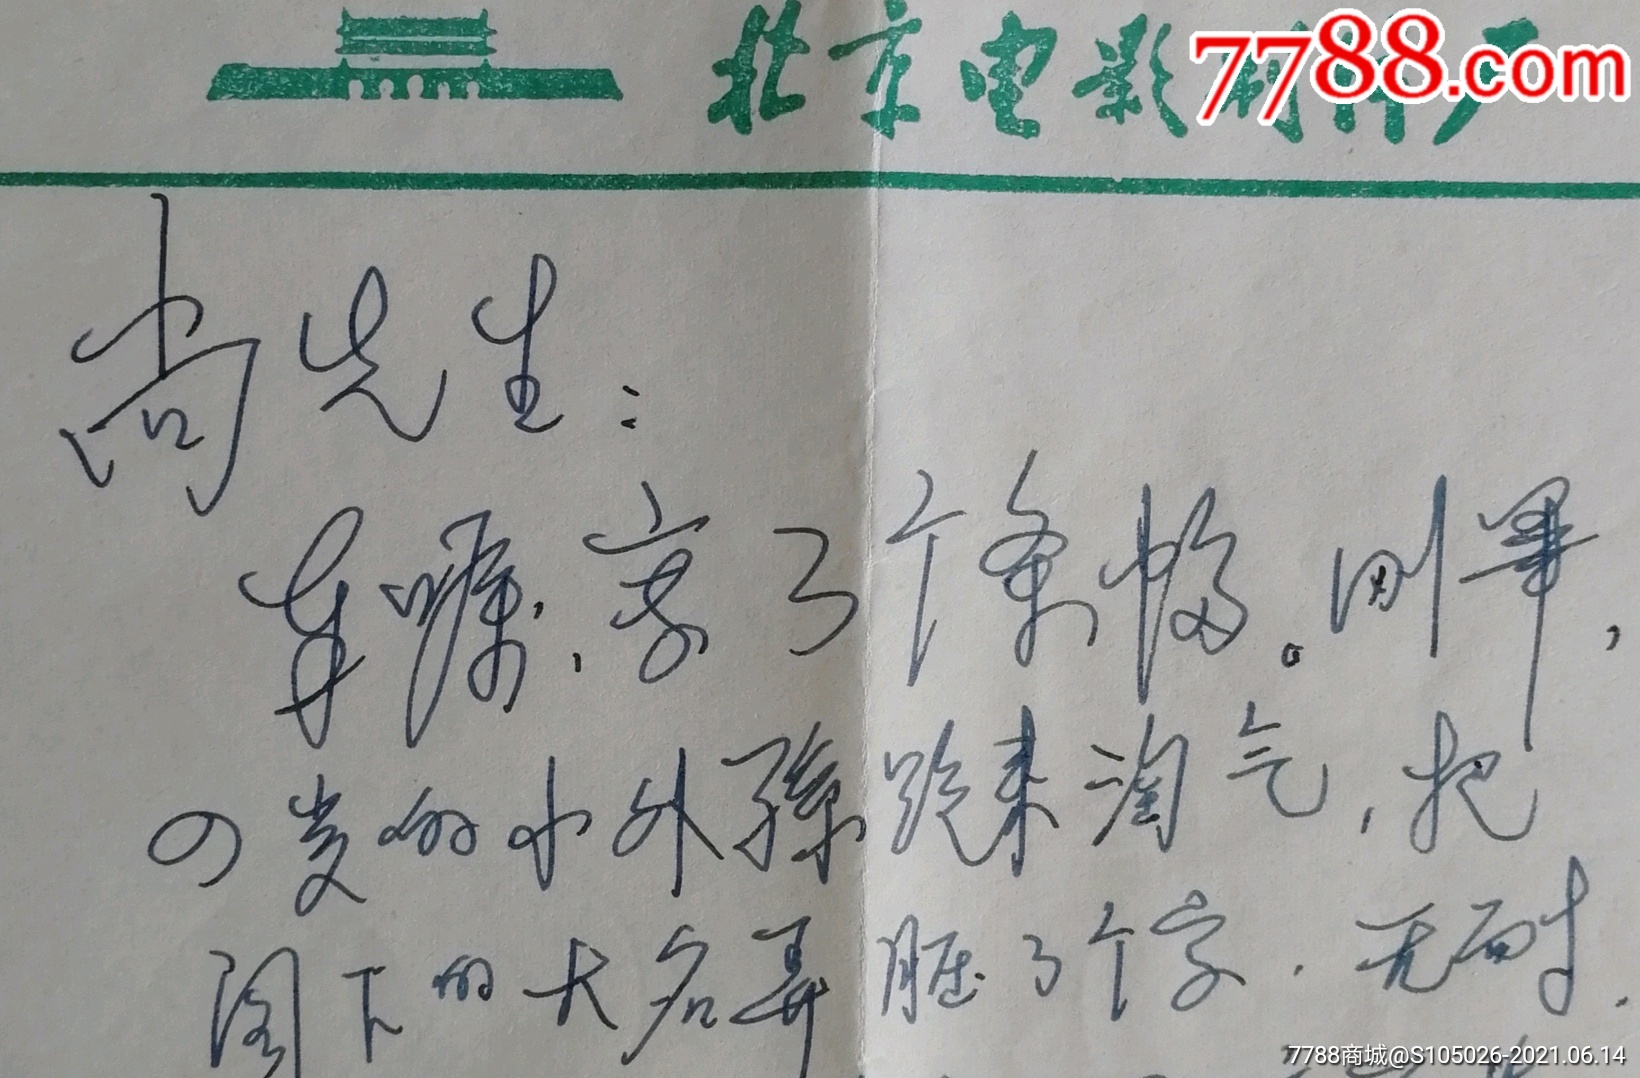 北京电影制片厂
7788.com
尚先生：
奉嘱，写了个条幅。刚畢，
四岁的小外孫跑来淘气，把
阁下的大名弄脏了个字．无耐．
7788商城@S105026-2021.06.14